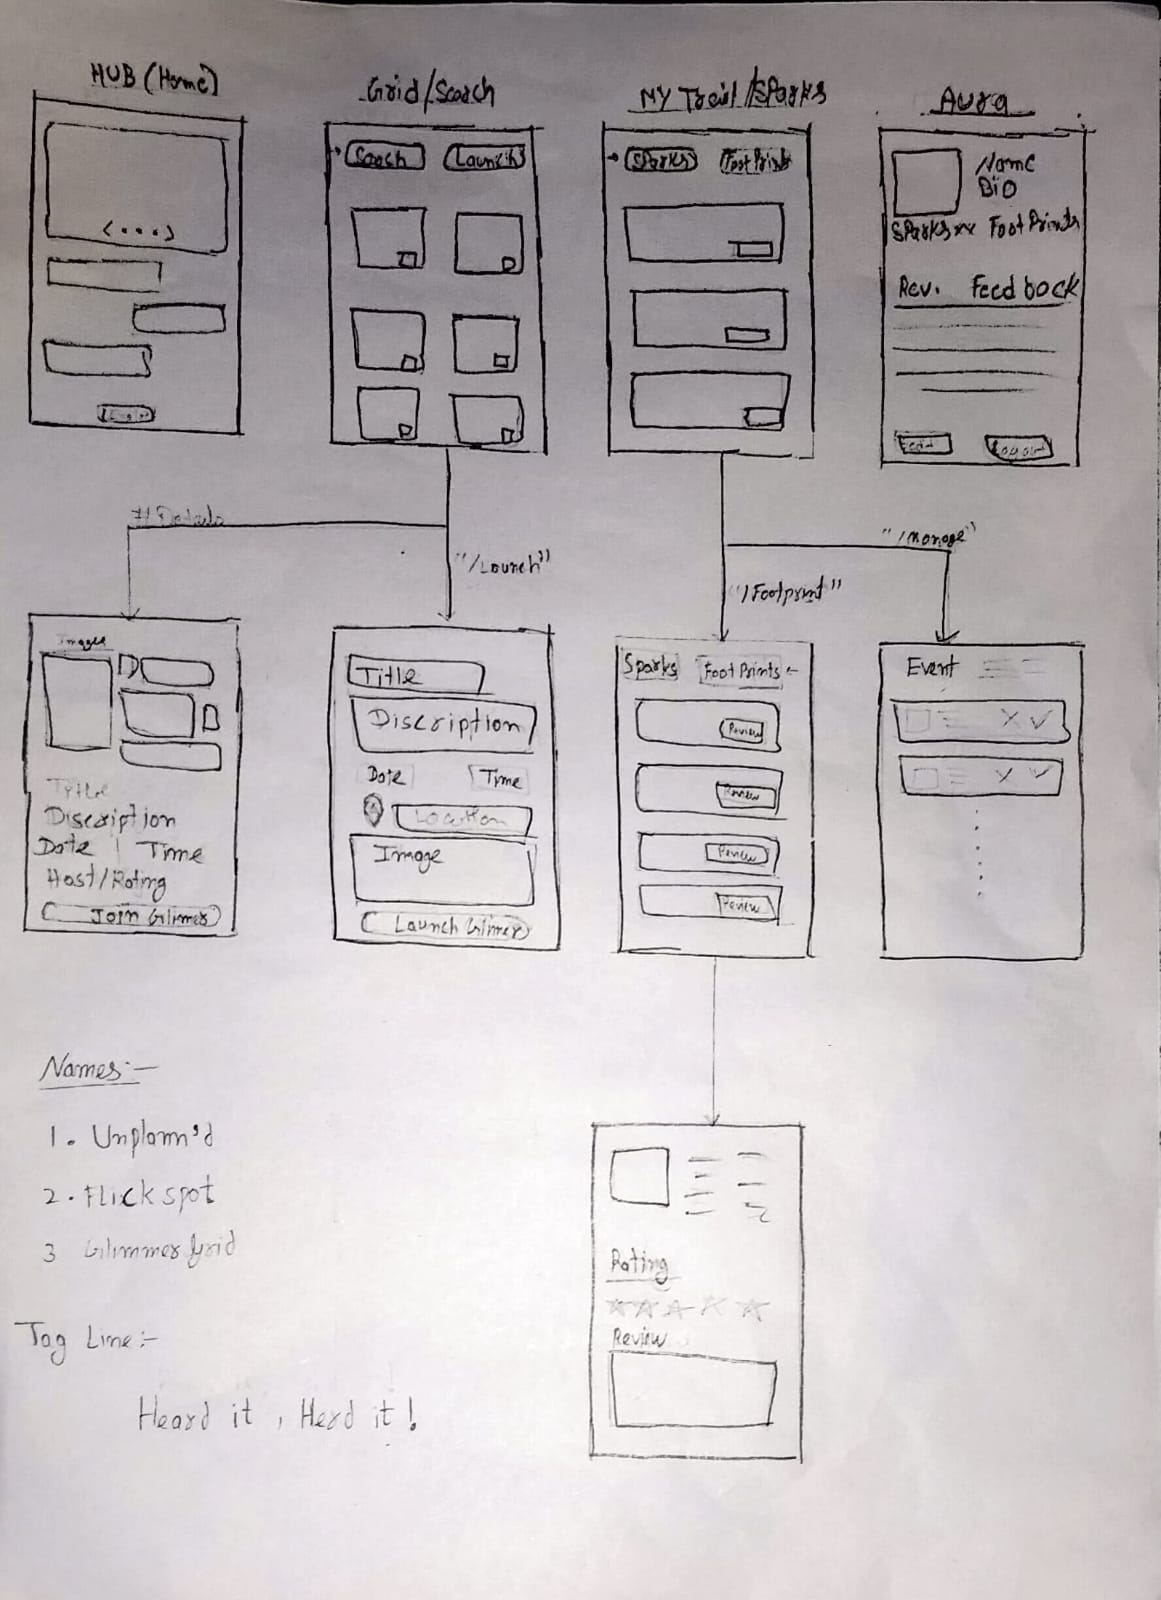 HUB (Home)
Grid/Search
MY Trail/SParks
Aura
Search
Launch
SParks
Foot Prints
Name
Bio
SParks xx Foot Prints
Rev. Feedback
Edit
Logout
#1 Details
"/Launch"
"/Footprint"
"/manage"
Images
Title
Discription
Date | Time
Host/Rating
Join Glimmer
Title
Discription
Date
Time
Location
Image
Launch Glimer
Sparks
Foot Prints
Review
Review
Review
Review
Event
X ✓
X ✓
Rating
Review
Names:-
1. Unplann'd
2. Flick spot
3 Glimmer Grid
Tag Line:-
Heard it, Herd it!